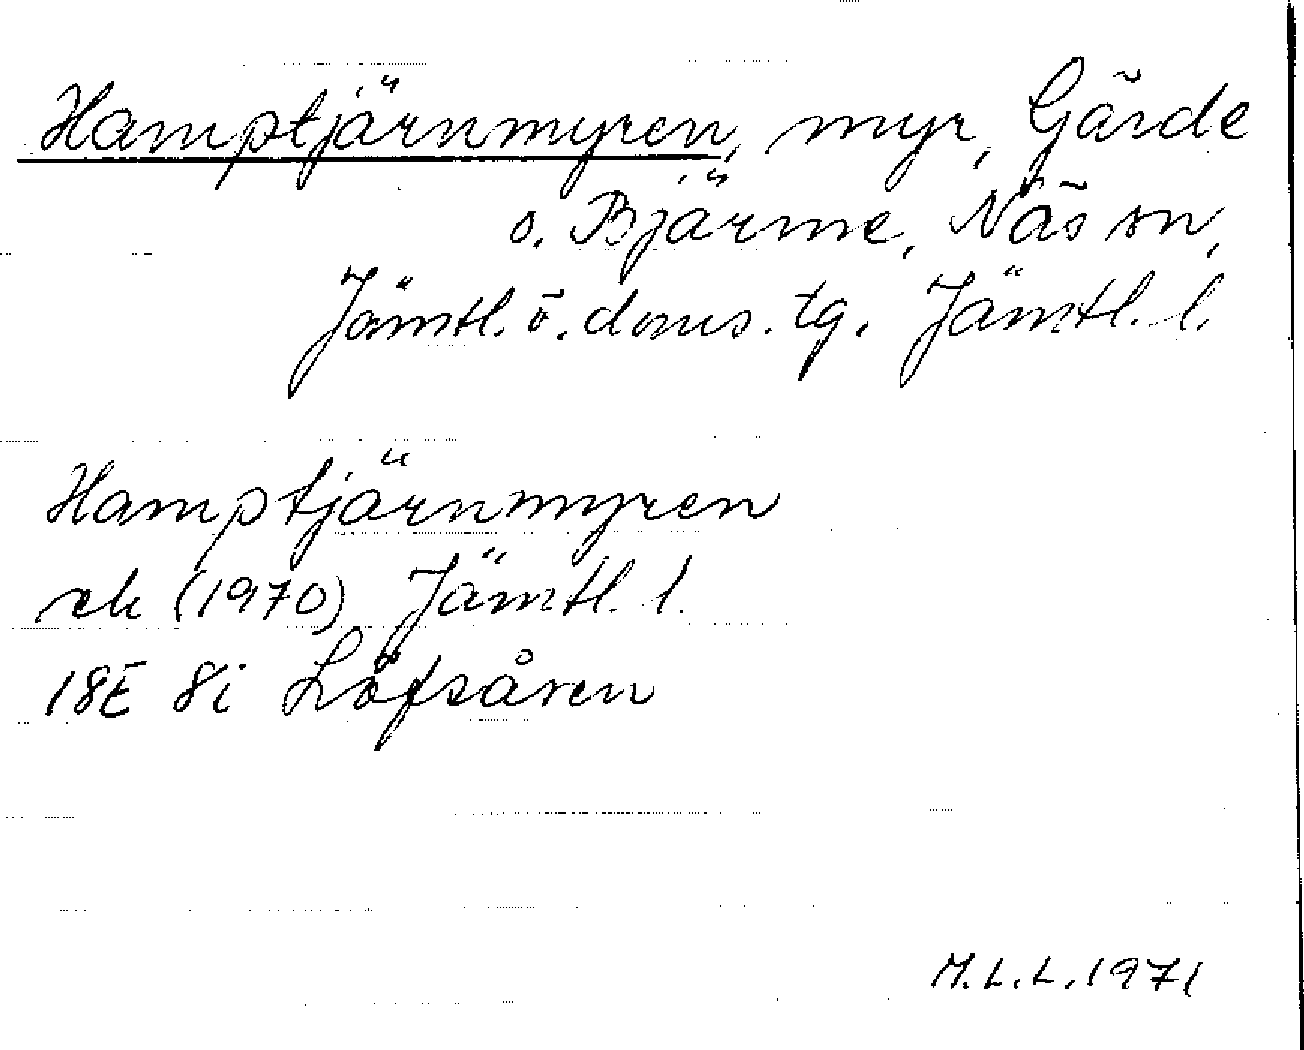 Hamptjärnmyren, myr, Gärde
o. Bjärme, Näs sn,
Jämtl. ö. doms. tg. Jämtl. l.
Hamptjärnmyren
ek (1970) Jämtl. l.
18E 8i Löfsåren
M.L.L. 1971